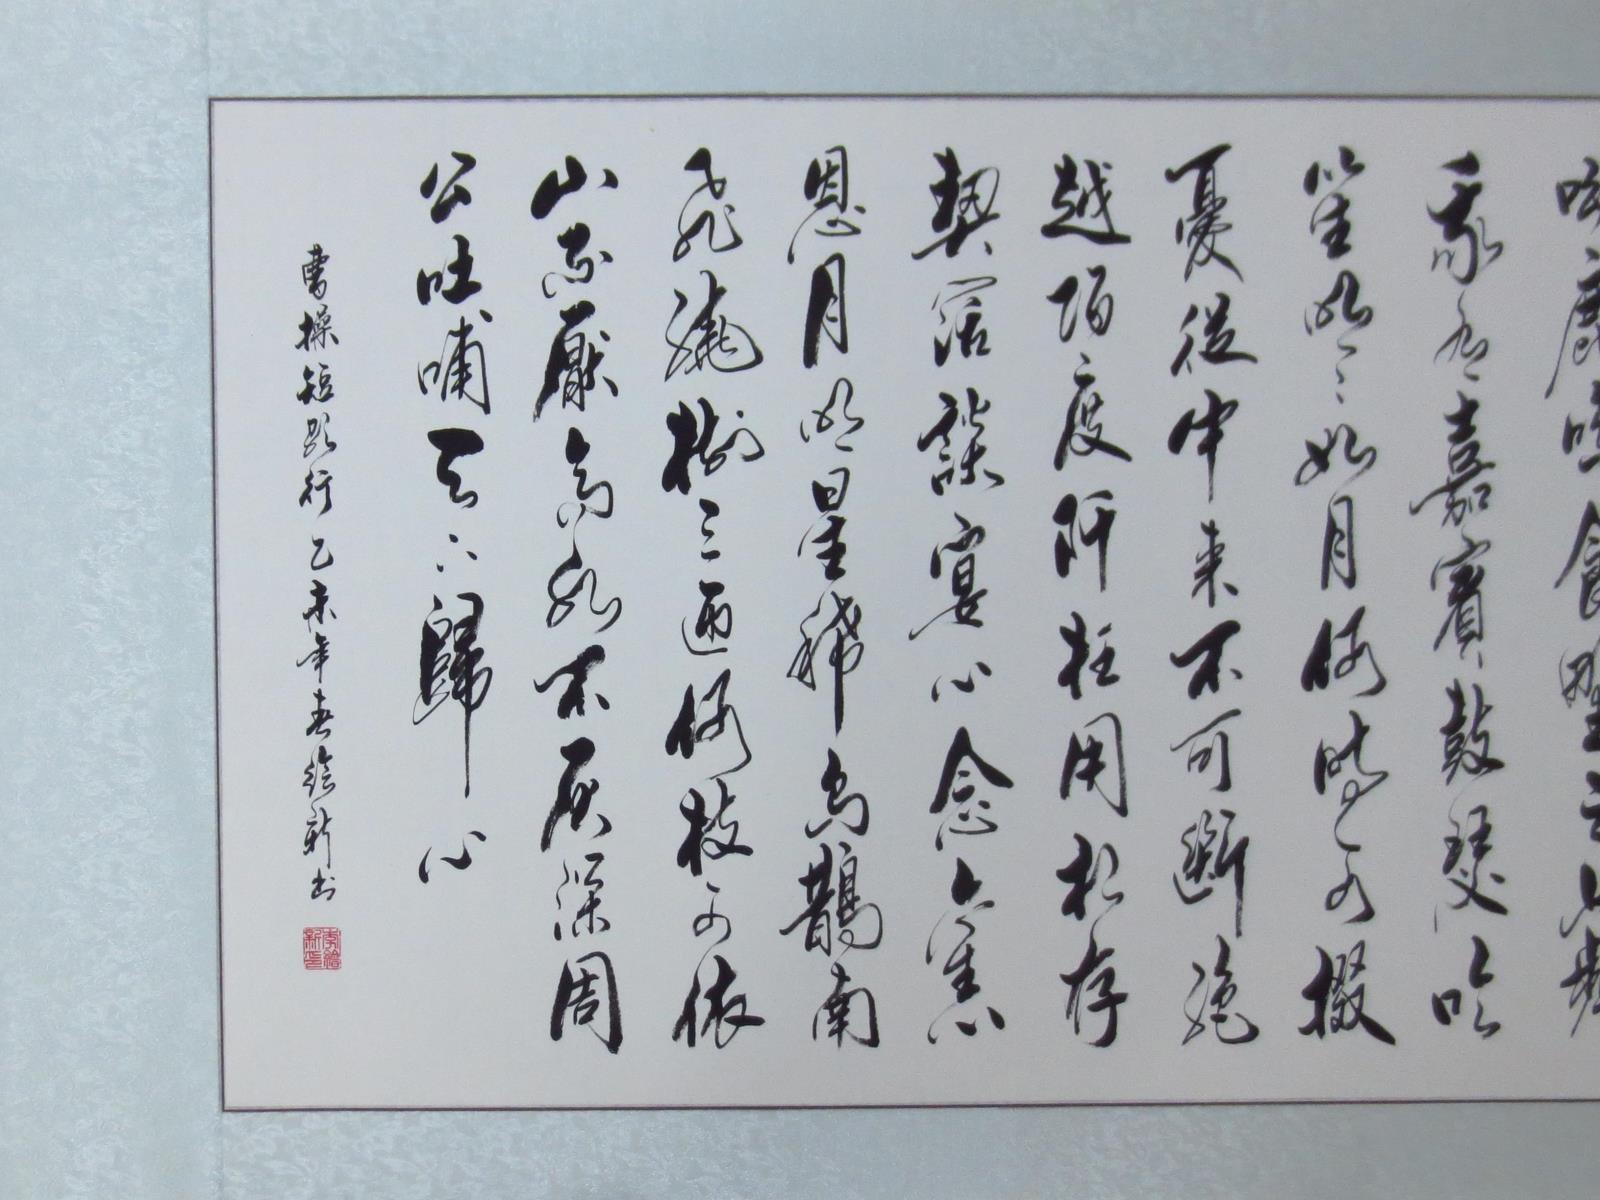 鹿鳴食野之苹
我有嘉賓鼓瑟吹
笙明〻如月何時可掇
憂從中來不可斷絕
越陌〻度阡枉用相存
契闊談宴心念舊
恩月明星稀烏鵲南
飛繞樹三匝何枝可依
山不厭高水不厭深周
公吐哺天下歸心
曹操短歌行乙未年春繪新書